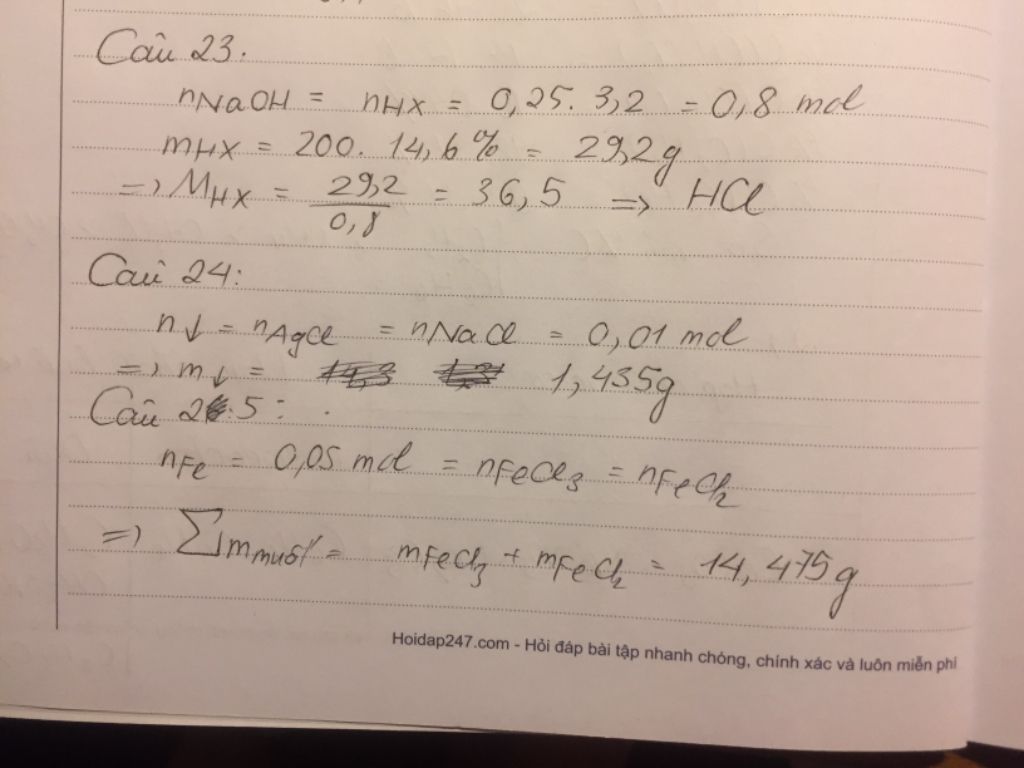 Câu 23.
nNaOH = nHX = 0,25. 3,2 = 0,8 mol
mHX = 200. 14,6% = 29,2g
=> MHX = 29,2 / 0,8 = 36,5 => HCl
Câu 24:
n↓ = nAgCl = nNaCl = 0,01 mol
=> m↓ = 1,435g
Câu 25:
nFe = 0,05 mol = nFeCl3 = nFeCl2
=> ∑mmuối = mFeCl3 + mFeCl2 = 14,475g
Hoidap247.com - Hỏi đáp bài tập nhanh chóng, chính xác và luôn miễn phí